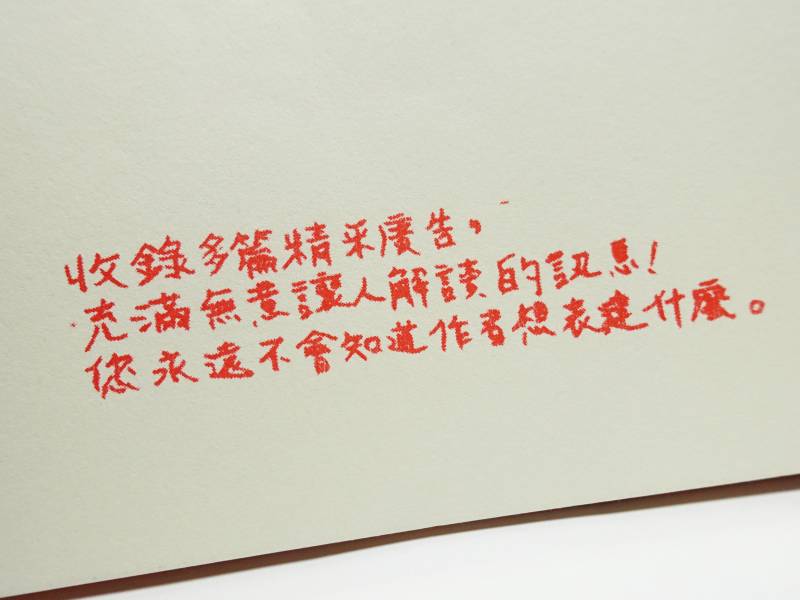 收錄多篇精采廣告，
充滿無意讓人解讀的訊息！
您永遠不會知道作者想表達什麼。